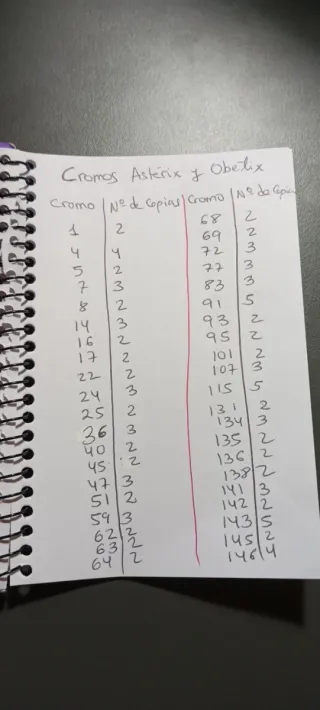 Cromos Astérix y Obélix
Cromo Nº de Copias
1 2
4 4
5 2
7 3
8 2
14 3
16 2
17 2
22 2
24 3
25 2
36 3
40 2
45 2
47 3
51 2
59 3
62 2
63 2
64 2
Cromo Nº de Copias
68 2
69 2
72 3
77 3
83 3
91 5
93 2
95 2
101 2
107 3
115 5
131 2
134 3
135 2
136 2
138 2
141 3
142 2
143 5
145 2
146 4